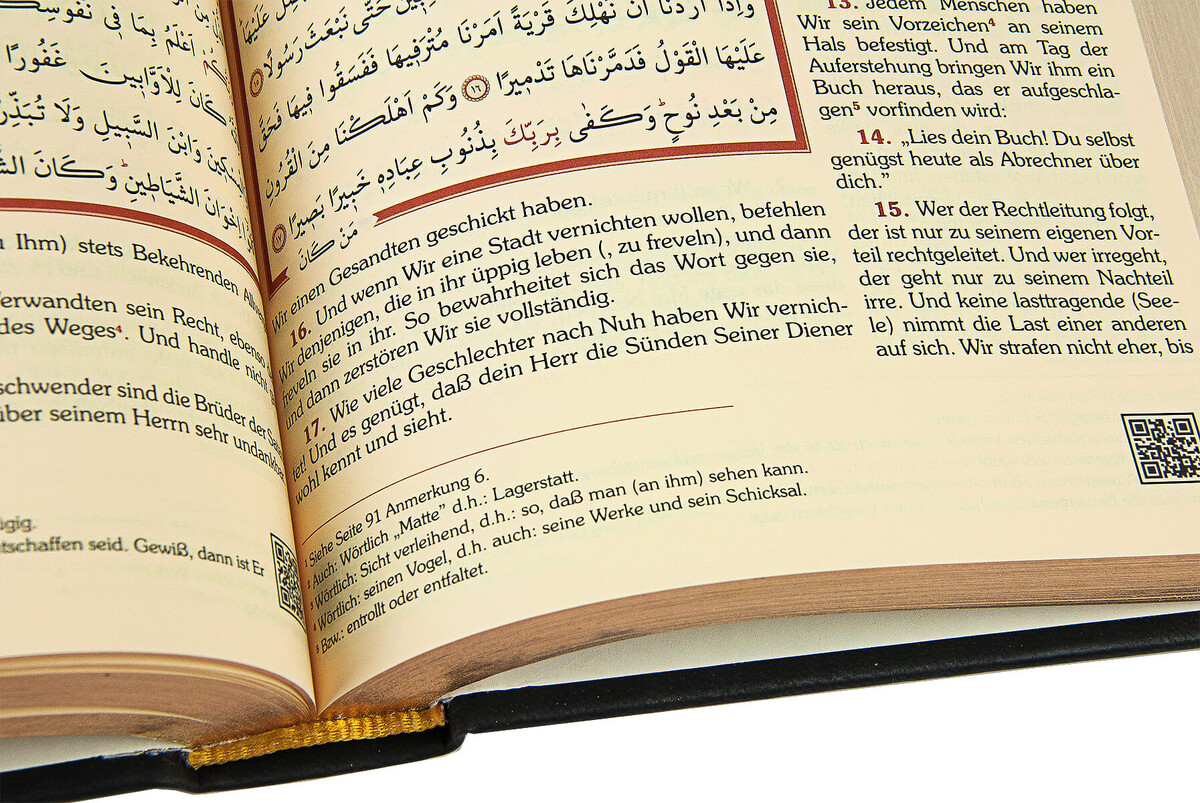 اَعْلَمُ بِمَا فٖي نُفُوسِكُمْ
كَانَ لِلْاَوَّابٖينَ غَفُورًا
وَابْنَ السَّبٖيلِ وَلَا تُبَذِّرْ
اِخْوَانَ الشَّيَاطٖينِ وَكَانَ
u Ihm) stets Bekehrenden
erwandten sein Recht, ebenso
des Weges⁴. Und handle nicht
schwender sind die Brüder der
über seinem Herrn sehr undankbar
tschaffen seid. Gewiß, dann ist Er
حَتّٰى نَبْعَثَ رَسُولًا ١٥
وَاِذَا اَرَدْنَا اَنْ نُهْلِكَ قَرْيَةً اَمَرْنَا مُتْرَفٖيهَا فَفَسَقُوا فٖيهَا فَحَقَّ
عَلَيْهَا الْقَوْلُ فَدَمَّرْنَاهَا تَدْمٖيرًا ١٦ وَكَمْ اَهْلَكْنَا مِنَ الْقُرُونِ
مِنْ بَعْدِ نُوحٍ وَكَفٰى بِرَبِّكَ بِذُنُوبِ عِبَادِهٖ خَبٖيرًا بَصٖيرًا ١٧
مَنْ كَانَ
Wir einen Gesandten geschickt haben.
16. Und wenn Wir eine Stadt vernichten wollen, befehlen
Wir denjenigen, die in ihr üppig leben (, zu freveln), und dann
freveln sie in ihr. So bewahrheitet sich das Wort gegen sie,
und dann zerstören Wir sie vollständig.
17. Wie viele Geschlechter nach Nuh haben Wir vernich-
tet! Und es genügt, daß dein Herr die Sünden Seiner Diener
wohl kennt und sieht.
¹ Siehe Seite 91 Anmerkung 6.
² Auch: Wörtlich „Matte” d.h.: Lagerstatt.
³ Wörtlich: Sicht verleihend, d.h.: so, daß man (an ihm) sehen kann.
⁴ Wörtlich: seinen Vogel, d.h. auch: seine Werke und sein Schicksal.
⁵ Bzw.: entrollt oder entfaltet.
13. Jedem Menschen haben
Wir sein Vorzeichen⁴ an seinem
Hals befestigt. Und am Tag der
Auferstehung bringen Wir ihm ein
Buch heraus, das er aufgeschla-
gen⁵ vorfinden wird:
14. „Lies dein Buch! Du selbst
genügst heute als Abrechner über
dich.”
15. Wer der Rechtleitung folgt,
der ist nur zu seinem eigenen Vor-
teil rechtgeleitet. Und wer irregeht,
der geht nur zu seinem Nachteil
irre. Und keine lasttragende (See-
le) nimmt die Last einer anderen
auf sich. Wir strafen nicht eher, bis